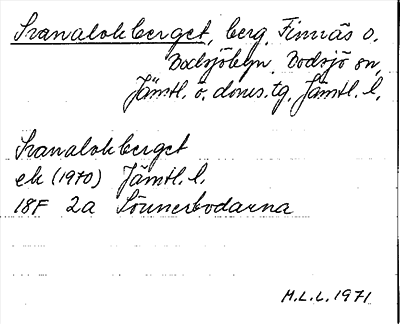 Svanalokberget, berg, Finnäs o.
Bodsjöbyn, Bodsjö sn,
Jämtl. ö. doms.tg, Jämtl. l.
Svanalokberget
ek (1970) Jämtl. l.
18F 2a Sönnerbodarna
M.L.L. 1971